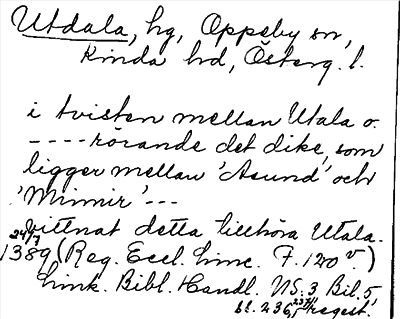 Utdala, hg, Oppeby sn,
Kinda hd, Österg. l.
i tvisten mellan Utala o.
----rörande det dike, som
ligger mellan 'Asund' och
'Mimir'---
vittnat detta tillhöra Utala.
24/7
1389 (Reg. Eccl. Linc. F. 120 v.)
Link. Bibl. Handl. NS. 3 Bil. 5,
bl. 236, regest.